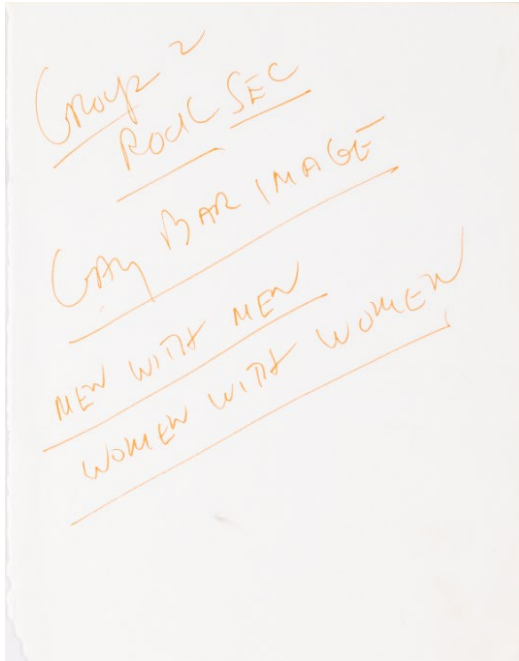 Group 2
ROCK SEC
GAY BAR IMAGE
MEN WITH MEN
WOMEN WITH WOMEN